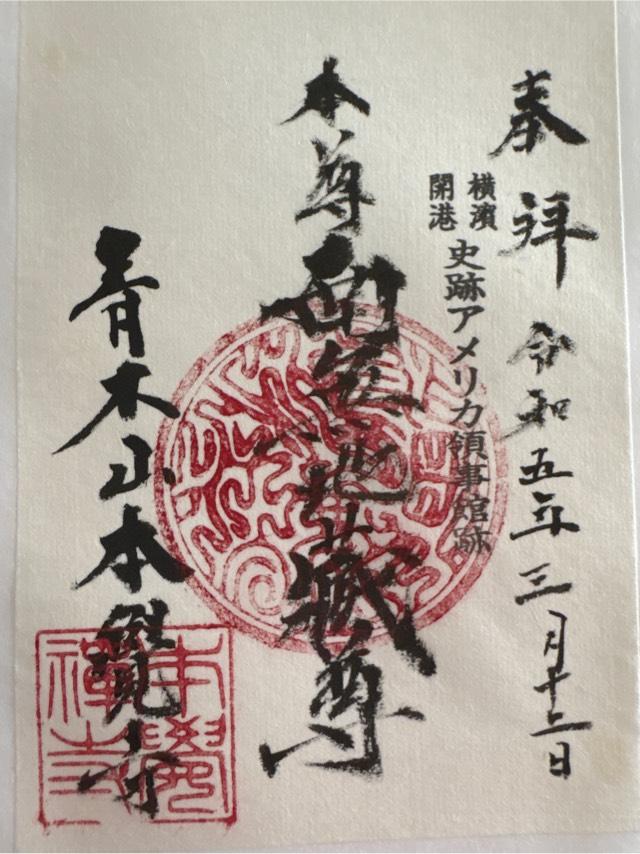 奉拝 令和五年三月十二日
横濱
開港
史跡アメリカ領事館跡
本尊南無地藏尊
青木山本覺寺
本覺
禪寺